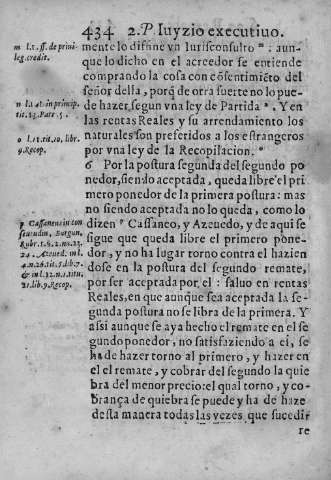 434 2. P. Iuyzio executiuo.
m l.1. ff. de priui-
leg. credit.
mente lo difine vn Iurisconsulto m: aun-
que lo dicho en el acreedor se entiende
comprando la cosa con cōsentimiēto del
señor della, porq̄ de otra suerte no lo pue-
n l.44. in princip.
tit.13. Part.5.
de hazer, segun vna ley de Partida n. Y en
las rentas Reales y su arrendamiento los
naturales son preferidos a los estrangeros
o l.12. tit.10. libr.
9. Recop.
por vna ley de la Recopilacion. o
6 Por la postura segunda del segundo po
nedor, siendo aceptada, queda libre el pri
mero ponedor de la primera postura: mas
no siendo aceptada no lo queda, como lo
p Cassaneus in con
suetudin. Burgun.
Rubr.1. §.2. nu.23.
24. Azeued. in l.
4. n.26. tit.5. lib.7.
& in l.12. n.1. titu.
21. lib.9. Recop.
dizen p Cassaneo, y Azeuedo, y de aqui se
sigue que queda libre el primero pone-
dor, y no ha lugar torno contra el hazien
dose en la postura del segundo remate,
por ser aceptada por el: saluo en rentas
Reales, en que aunque sea aceptada la se-
gunda postura no se libra de la primera. Y
assi aunque se aya hecho el remate en el se
gundo ponedor, no satisfaziendo a el, se
ha de hazer torno al primero, y hazer en
el el remate, y cobrar del segundo la quie
bra del menor precio: el qual torno, y co-
brança de quiebra se puede y ha de haze
desta manera todas las vezes que sucedir
re